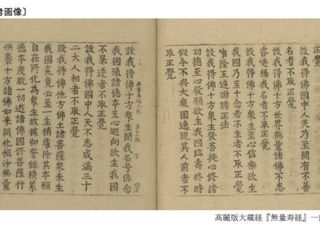 考画像〕
取正覺
設我得佛國中人天乃至聞有不善
名者不取正覺
設我得佛十方世界無量諸佛不悉
咨嗟稱我名者不取正覺
設我得佛十方衆生至心信樂欲生
我國乃至十念若不生者不取正覺
唯除五逆誹謗正法
設我得佛十方衆生發菩提心修諸
功德至心發願欲生我國臨壽終時
假令不與大衆圍遶現其人前者不
取正覺
設我得佛十方衆生聞我名号係念
我國殖諸德本至心迴向欲生我國
不果遂者不取正覺
設我得佛國中人天不悉成滿三十
二大人相者不取正覺
設我得佛他方佛土諸菩薩衆來生
我國究竟必至一生補處除其本願
自在所化爲衆生故被弘誓鎧積累
德本度脫一切遊諸佛國修菩薩行
供養十方諸佛如來開化恒沙無量
高麗版大蔵経『無量寿経』一